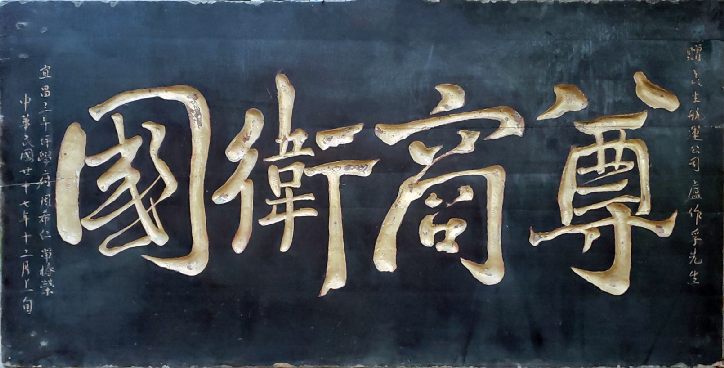 贈民生航業公司 盧作孚先生
尊商衛國
宜昌三年 學府周希仁
中華民國廿十七年十二月上旬